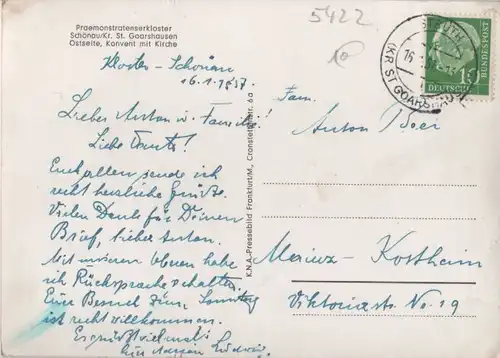 Praemonstratenserkloster
Schönau/Kr. St. Goarshausen
Ostseite, Konvent mit Kirche
5422
10
Kloster-Schönau
16.1.1957
Lieber Anton u. Familie!
Liebe Tante!
Euch allen sende ich
recht herzliche Grüße.
Vielen Dank für Deinen
Brief, lieber Anton.
Mit meinen Obern habe
ich Rücksprache gehalten.
Eure Besuch zum Sonntag
ist recht willkommen.
Es grüßt vielmals
Euer Ludwig
K.N.A.-Pressebild Frankfurt/M., Cronstettenstr. 6a
(KR ST. GOARSHAUSEN)
16
10
DEUTSCHE BUNDESPOST
Fam.
Anton Boer
Mainz-Kostheim
Viktoriastr. No 19